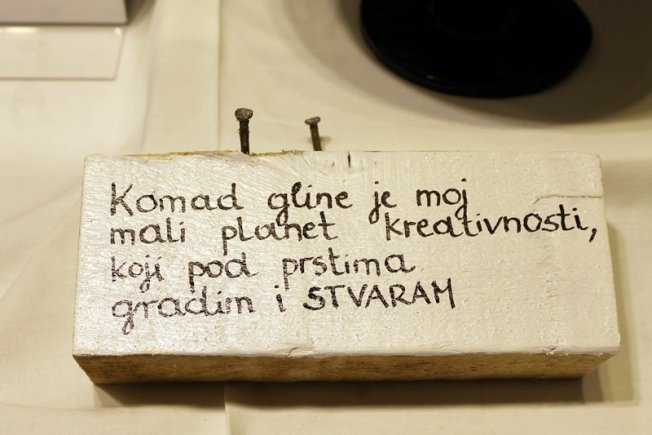 Komad gline je moj
mali planet kreativnosti,
koji pod prstima
gradim i STVARAM